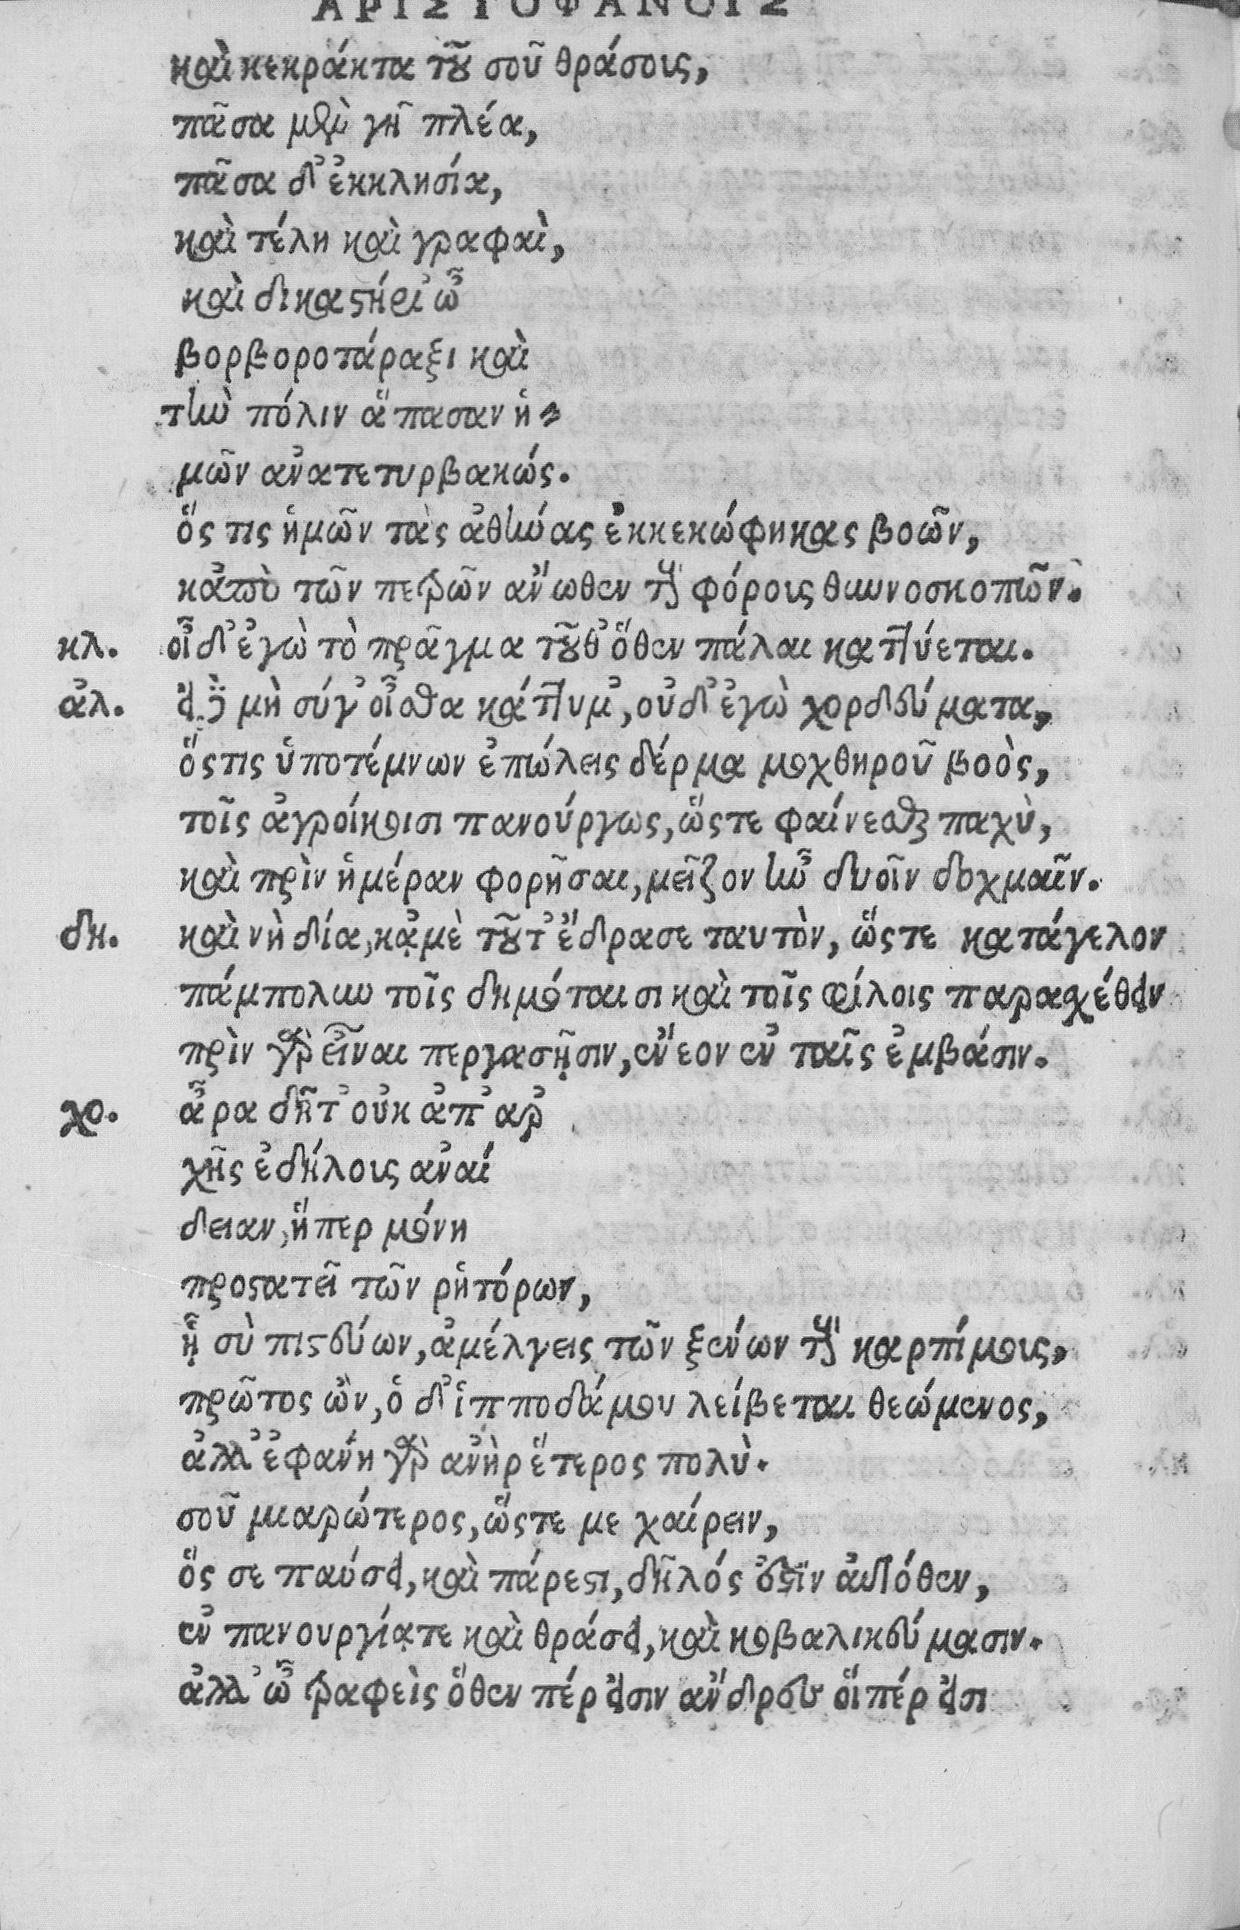 ΑΡΙΣΤΟΦΑΝΟΥΣ
καὶ κεκράκτα τοῦ σοῦ θράσους,
πᾶσα μὲν γῆ πλέα,
πᾶσα δ' ἐκκλησία,
καὶ τέλη καὶ γραφαὶ,
καὶ δικαστήρι' ὦ
βορβοροτάραξι καὶ
τὴν πόλιν ἅπασαν ἡ-
μῶν ἀνατετυρβακώς.
ὅς τις ἡμῶν τὰς ἀθήνας ἐκκεκώφηκας βοῶν,
κἀπὸ τῶν πετρῶν ἄνωθεν τοὺς φόρους θυννοσκοπῶν.
κλ. οἶδ' ἐγὼ τὸ πρᾶγμα τοῦθ' ὅθεν πάλαι καττύεται.
ἀλ. εἰ δὲ μὴ σύγ' οἶσθα κάττυμ', οὐδ' ἐγὼ χορδεύματα,
ὅςτις ὑποτέμνων ἐπώλεις δέρμα μοχθηροῦ βοὸς,
τοῖς ἀγροίκοισι πανούργως, ὥςτε φαίνεσθαι παχὺ,
καὶ πρὶν ἡμέραν φορῆσαι, μεῖζον ἦν δυοῖν δοχμαῖν.
δη. καὶ νὴ δία, κᾀμὲ τοῦτ' ἔδρασε ταυτὸν, ὥςτε κατάγελον
πάμπολυν τοῖς δημόταισι καὶ τοῖς φίλοις παρασχέθειν
πρὶν γὰρ εἶναι περγασῇσιν, ἔνεον ἐν ταῖς ἐμβάσιν.
χο. ἆρα δῆτ' οὐκ ἀπ' ἀρ
χῆς ἐδήλους ἀναί
δειαν, ἥπερ μόνη
προστατεῖ τῶν ῥητόρων,
ᾗ σὺ πιστεύων, ἀμέλγεις τῶν ξένων τοὺς καρπίμους,
πρῶτος ὢν, ὁ δ' ἱπποδάμου λείβεται θεώμενος,
ἀλλ' ἐφάνη γὰρ ἀνὴρ ἕτερος πολὺ.
σοῦ μιαρώτερος, ὥςτε με χαίρειν,
ὅς σε παύσει, καὶ πάρεστι, δῆλός ἐστιν αὐτόθεν,
ἐν πανουργίᾳ τε καὶ θράσει, καὶ κοβαλικεύμασιν.
ἀλλ' ὦ τραφεὶς ὅθεν πέρ εἰσιν ἄνδρες οἵπέρ εἰσι